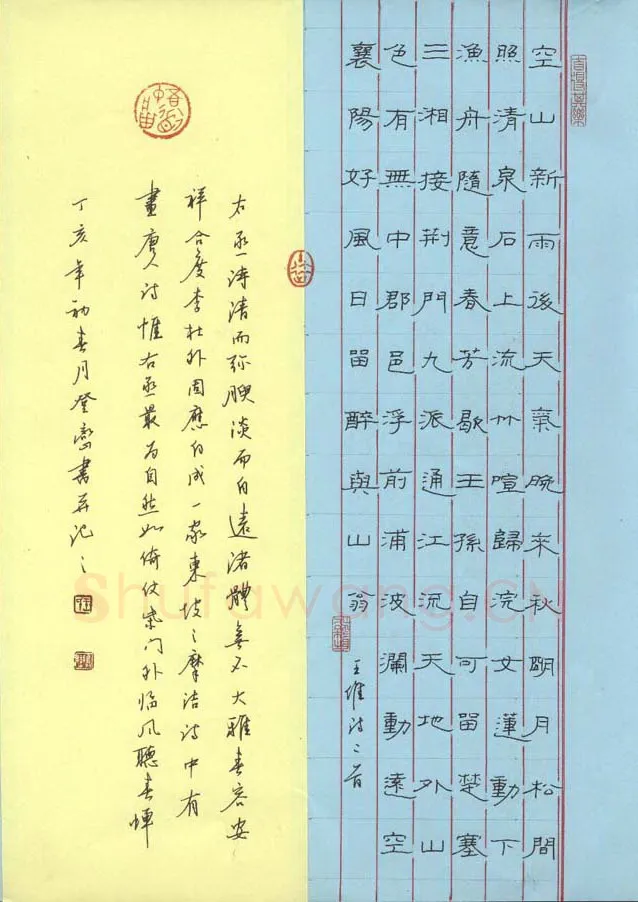 空山新雨後天氣晚來秋明月松間
照清泉石上流竹喧歸浣女蓮動下
漁舟隨意春芳歇王孫自可留楚塞
三湘接荆門九派通江流天地外山
色有無中郡邑浮前浦波瀾動遠空
襄陽好風日留醉與山翁
王维诗二首
右丞诗清而弥腴淡而自遠诸體無不大雅春容安
祥合度李杜外固應自成一家東坡云摩诘诗中有
畫唐人诗惟右丞最为自然如倚仗柴门外临风聽暮蝉
丁亥年初春月登書并记之
Shufawang.CN